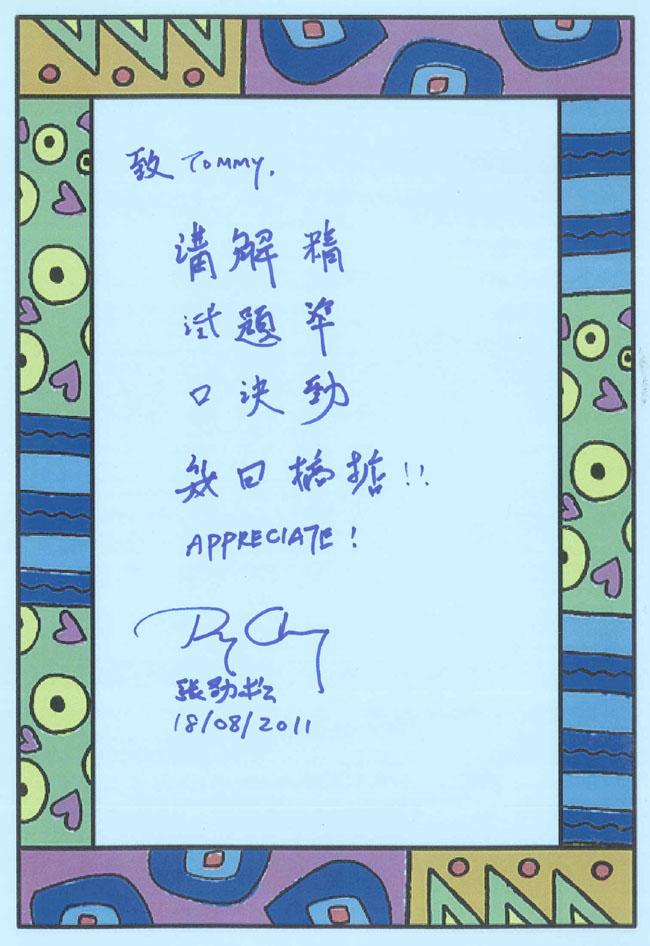 致 TOMMY,
講解精
試題準
口訣勁
幾日搞掂!!
APPRECIATE!
張勁松
18/08/2011